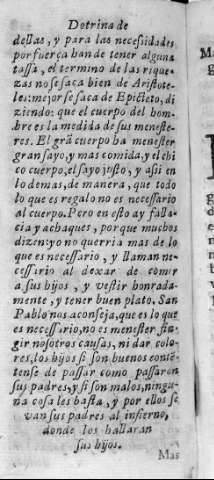 Dotrina de
dellas, y para las necessidades
por fuerça han de tener alguna
tassa, el termino de las rique-
zas no se saca bien de Aristote-
les: mejor se saca de Epicteto, di
ziendo: que el cuerpo del hom-
bre es la medida de sus meneste-
res. El grã cuerpo ha menester
gran sayo, y mas comida, y el chi
co cuerpo, el sayo justo, y asi en
lo demas, de manera, que todo
lo que es regalo no es necessario
al cuerpo. Pero en esto ay falla-
cia y achaques, por que muchos
dizen: yo no querria mas de lo
que es necessario, y llaman ne-
cessario al dexar de comer
a sus hijos, y vestir honrada-
mente, y tener buen plato. San
Pablo nos aconseja, que es lo que
es necessario, no es menester fin-
gir nosotros causas, ni dar colo-
res, los hijos si son buenos contẽ-
tense de passar como passaron
sus padres, y si son malos, ningu-
na cosa les basta, y por ellos se
van sus padres al infierno,
donde los hallaran
sus hijos.
Mas